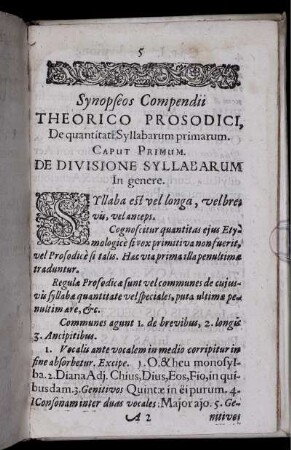 5
Synopseos Compendii
THEORICO PROSODICI,
De quantitate Syllabarum primarum.
CAPUT PRIMUM.
DE DIVISIONE SYLLABARUM
In genere.
SYllaba est vel longa, vel bre-
vis, vel anceps.
Cognoscitur quantitas ejus Ety-
mologicè si vox primitiva non fuerit,
vel Prosodicè si talis. Hac via prima illa penultima
traduntur.
Regulæ Prosodicæ sunt vel communes de cujus-
vis syllabæ quantitate vel speciales, puta ultimæ pe-
nultimæ re, &c.
Communes agunt 1. de brevibus, 2. longis
3. Ancipitibus.
1. Vocalis ante vocalem in medio corripitur in
fine absorbetur. Excipe. 1. O. & heu monosyl-
lba. 2. Diana Adj. Chius, Dius, Eos, Fio, in qui
bus dam. 3. Genitivos Quintæ in ëi purum. 4.
I Consonam inter duas vocales: Major ajo. 5. Ge-
A 2 nitivos